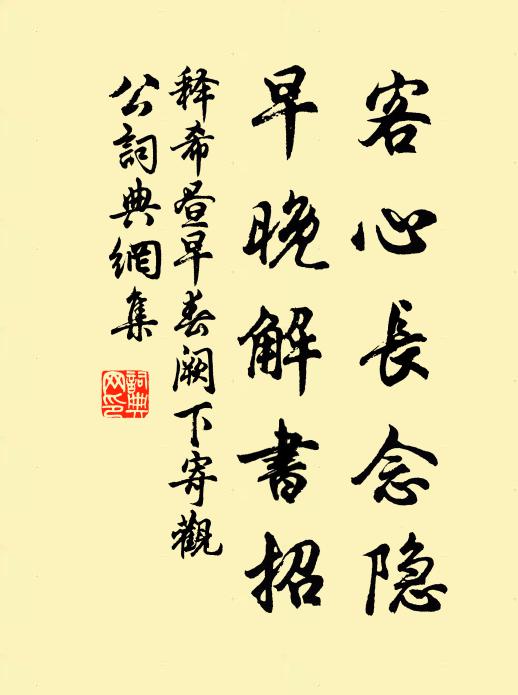 客心長念隐
早晚解書招
释希昼早春阙下寄觀
公詞典網集
詞典
网印